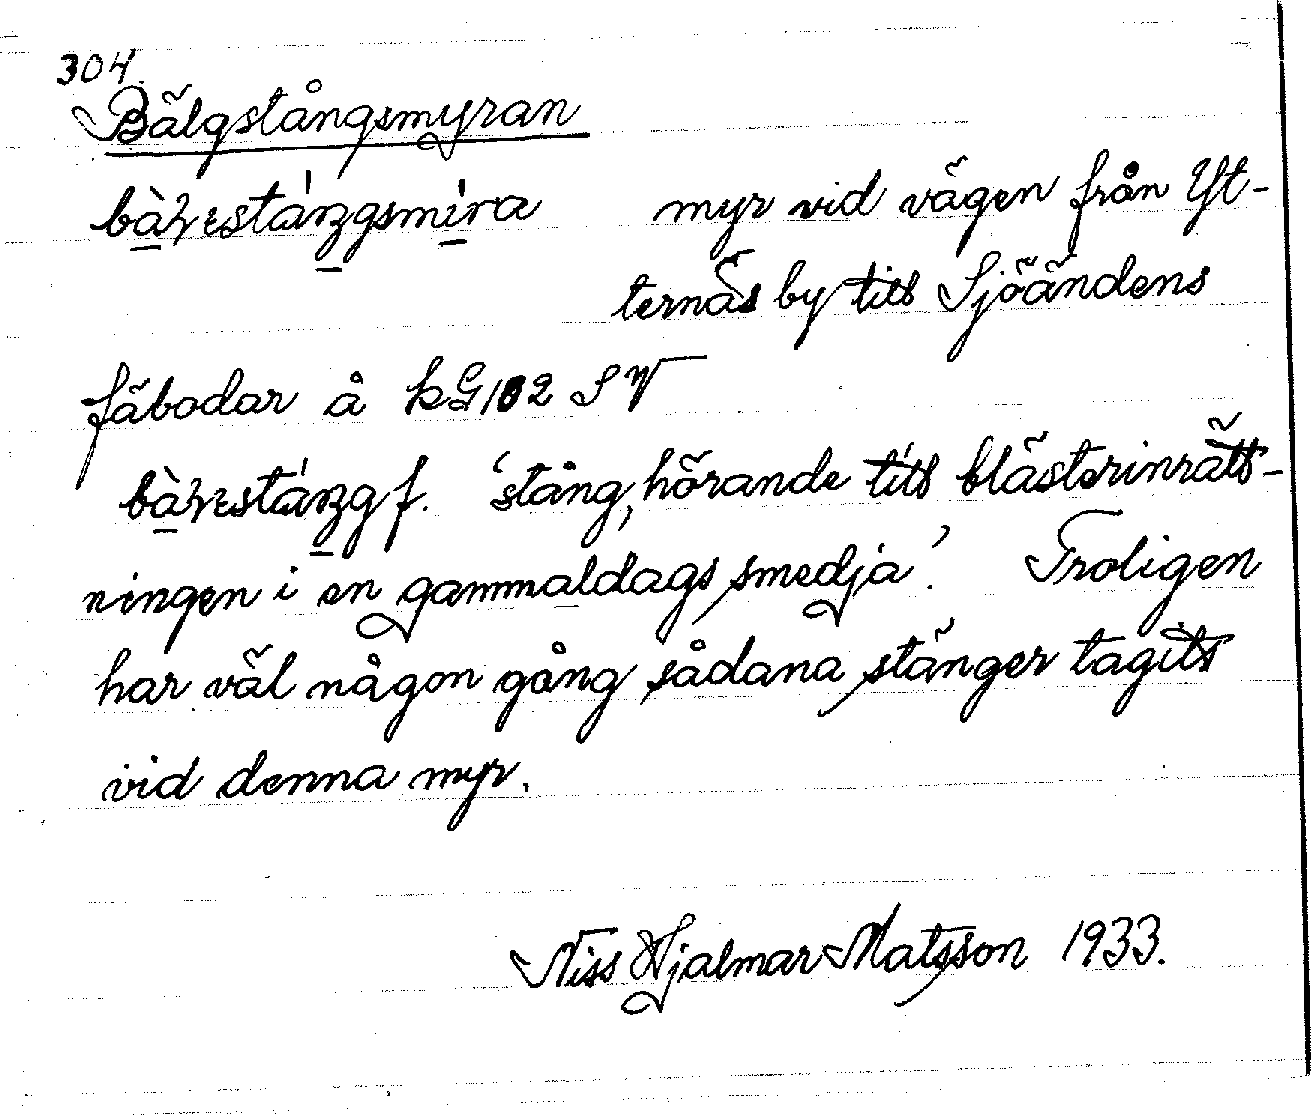 304.
Bälgstångsmyran
myr vid vägen från Yt-
ternäs by till Sjöändens
fäbodar å kG182 SV
f. 'stång, hörande till blästerinrätt-
ningen i en gammaldags smedja'. Troligen
har väl någon gång sådana stänger tagits
vid denna myr.
Niss Hjalmar Matsson 1933.